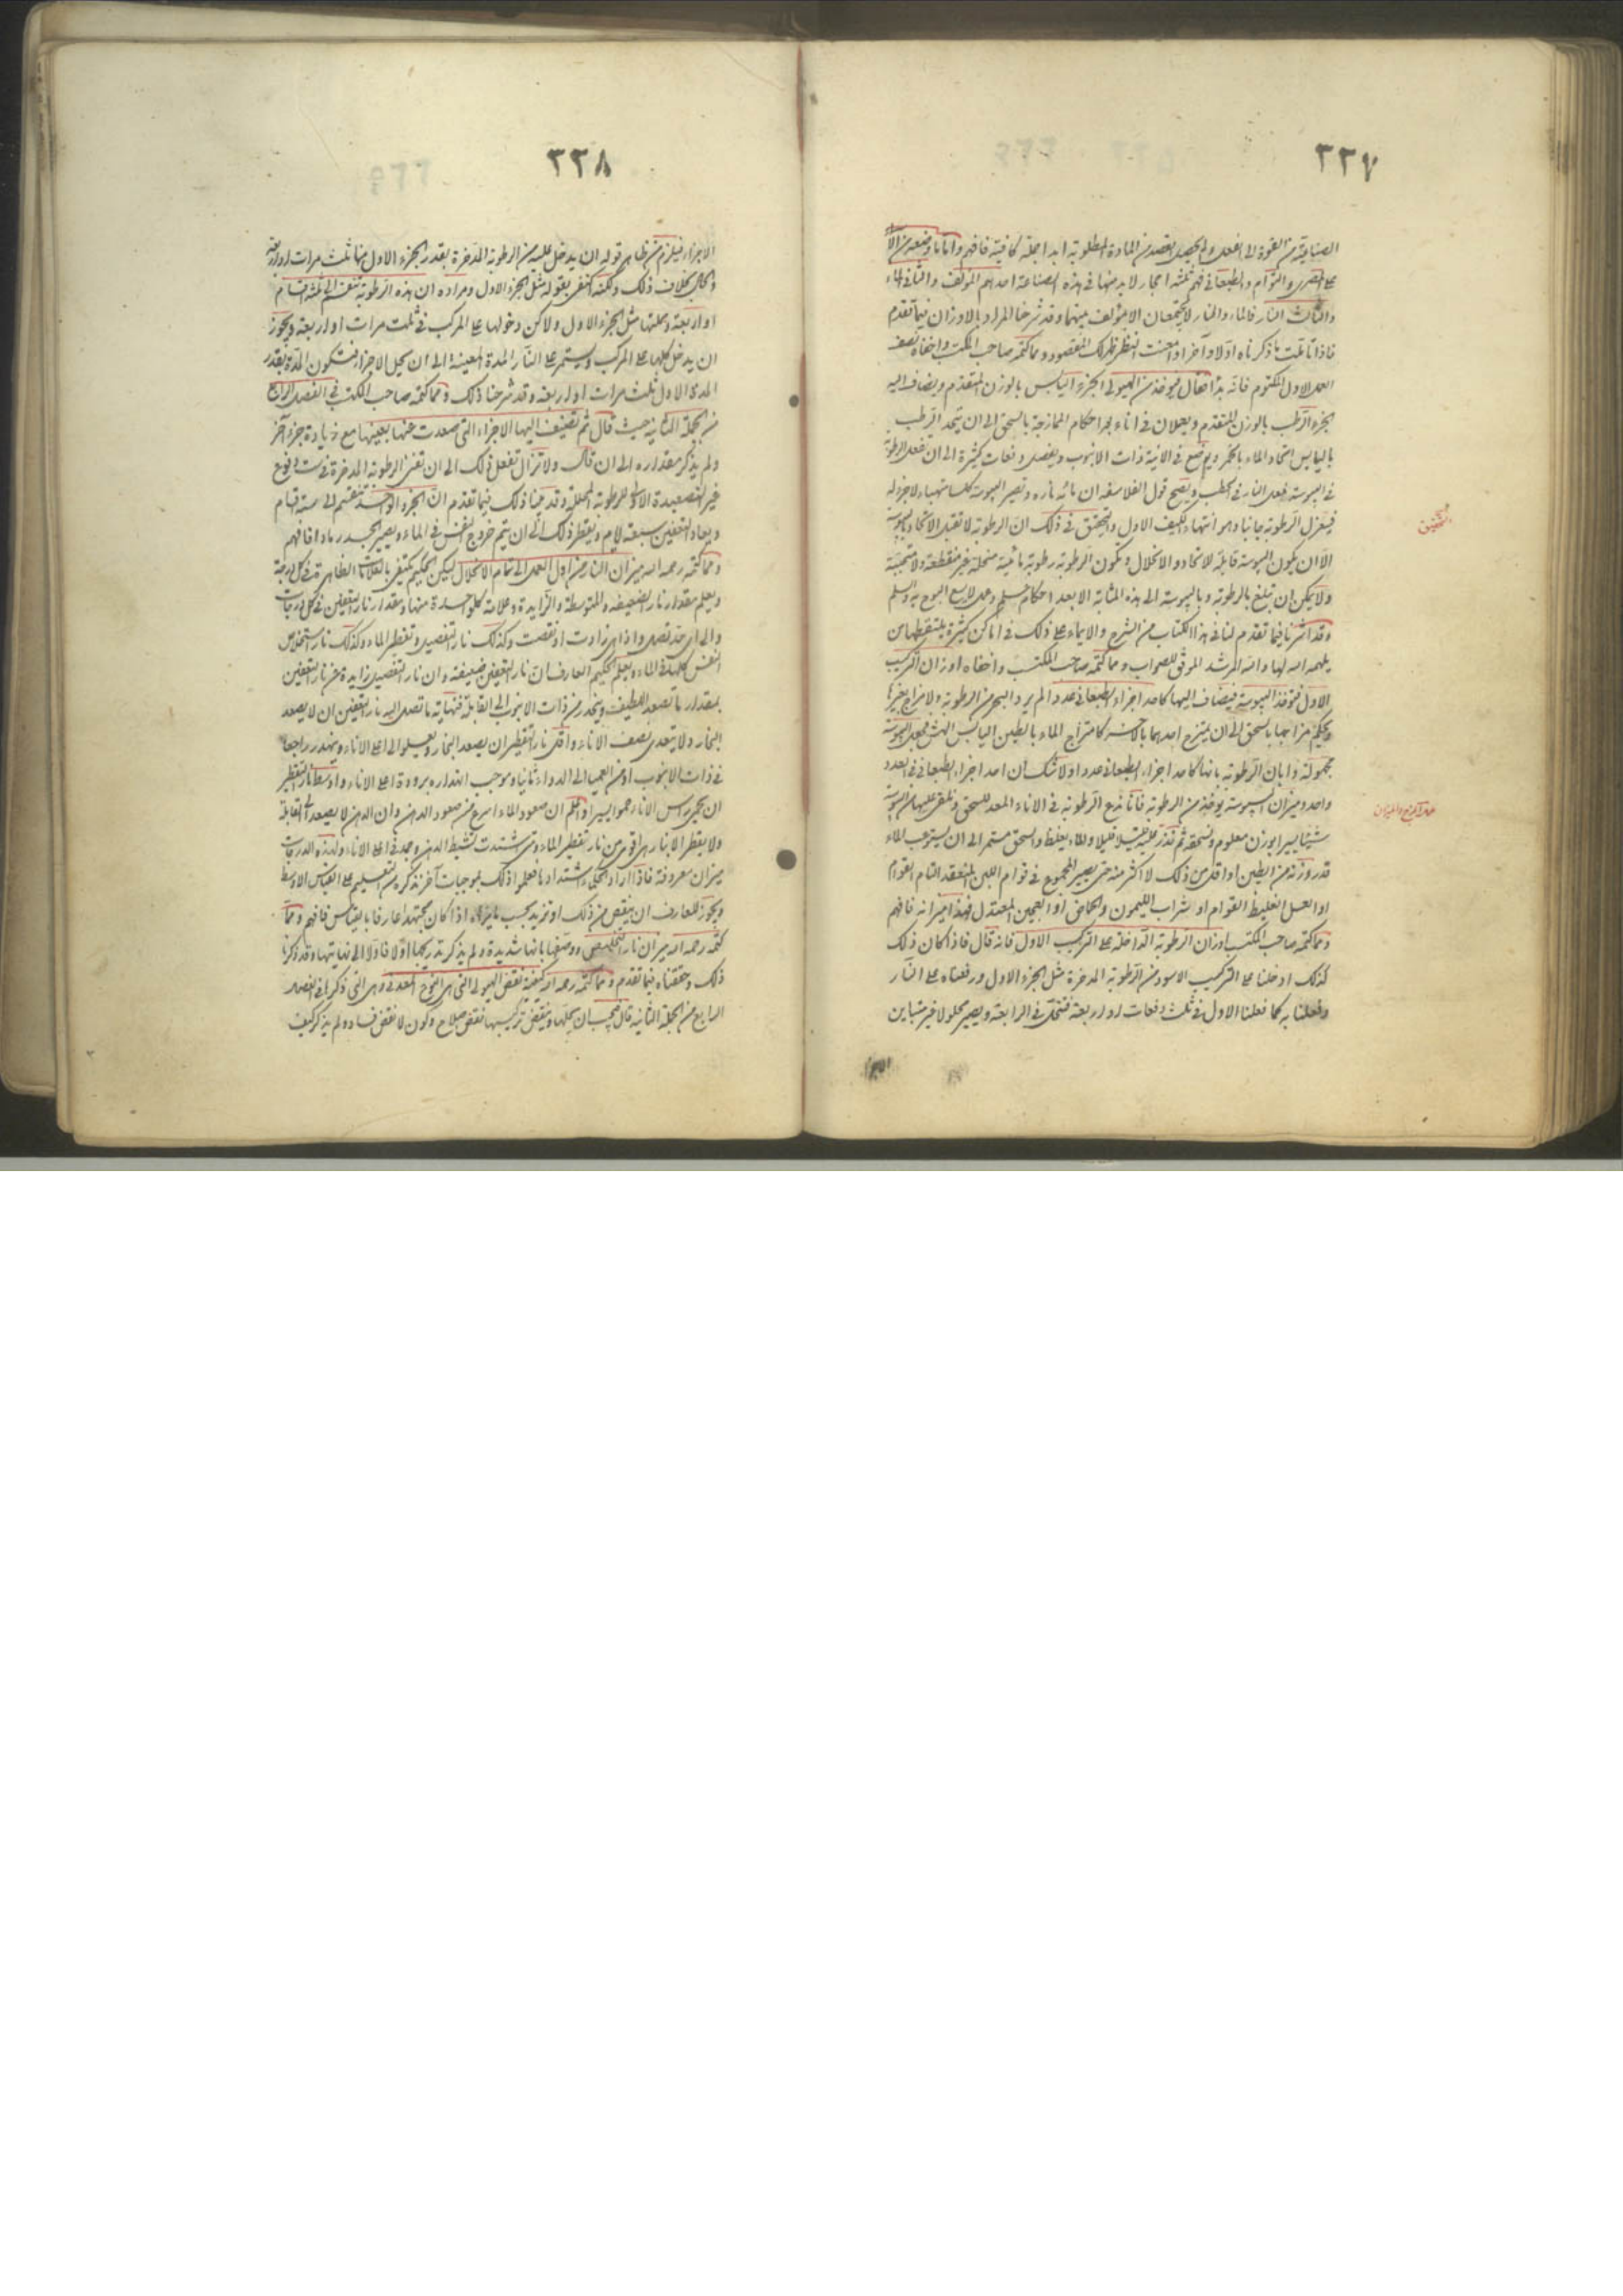 ٢٢٧
الصناعية من القوة الى الفعل ولم يحصل بقصد من المادة المطلوبة ابدا جملة كافية فافهم واما ما وضعه من الا
على المصرى والتوأم والطبعانى فهم ثلثة احجار لا بد منها فى هذه الصناعة احدهم المؤلف والثانى الماء
والثالث النار فالماء والنار لا يجتمعان الا بمؤلف بينهما وقد شرحنا المراد بالاوزان فيما تقدم
فاذا تأملت ما ذكرناه اولا وآخرا وامعنت النظر ظهر لك المقصود ومما كتمه صاحب المكتسب واخفاه نصف
العمل الاول المكتوم فانه بدأ فقال فيوخذ من الهيولى الجزء اليابس بالوزن المتقدم ويضاف اليه
الجزء الرطب بالوزن المتقدم ويعملان فى اناء بعد احكام الممازجة بالسحق الى ان يتحد الرطب
باليابس اتحاد الماء بالخمر ويوضع فى الانية ذات الانبوب ويفصل دفعات كثيرة الى ان تفعل الرطوبة
فى اليبوسة فعل النار فى الحطب ويصح قول الفلاسفة ان مائه ناره وتصير اليبوسة كلسا متهيئا لا جزء له
فيعزل الرطوبة جانبا وهو انتهاء الكيف الاول والتحقيق فى ذلك ان الرطوبة لا تقبل الاتحاد باليبوسة
الا ان يكون اليبوسة قابلة للاتحاد والانحلال وتكون الرطوبة رطوبة مائية منحلة غير منقطعة ولا متجنبة
ولا يمكن ان تبلغ بالرطوبة وباليبوسة الى هذه المثابة الا بعد احكام علم وعمل لا يسع البوح به والسلم
وقد اشرنا فيما تقدم لنا فى هذا الكتاب من الشرح والايماء على ذلك فى اماكن كثيرة يلتقطها من
يلهمه الله لها والله المرشد الموفق للصواب ومما كتمه صاحب المكتسب واخفاه اوزان التركيب
الاول فتوخذ اليبوسة فيضاف اليها كاحد اجزاء الطبعانى عددا لم يرد البحر من الرطوبة ولا مزاج بغيرها
ويحكم مزاجها بالسحق الى ان يمتزج احدهما بالاخر كامتزاج الماء بالطين اليابس الهش فجعل اليبوسة
مجهولة وابان الرطوبة بانها كاحد اجزاء الطبعانى عددا ولا شك ان احد اجزاء الطبعانى فى العدد
واحد وميزان اليبوسة يوخذ من الرطوبة فانا نضع الرطوبة فى الاناء المعد للسحق ونلقى عليها من اليبوسة
شيئا يسيرا بوزن معلوم ونسحقه ثم نذر عليه قليلا قليلا ولا يغلظ والسحق مستمر الى ان يستوعب الماء
قدر وزنه من الطين او اقل من ذلك لا اكثر منه حتى يصير المجموع فى قوام اللبن المنعقد التام القوام
او العسل الغليظ القوام او شراب الليمون والحماض او العجين المعتدل فهذا ميزانه فافهم
ومما كتمه صاحب المكتسب اوزان الرطوبة الداخلة على التركيب الاول فانه قال فاذا كان ذلك
كذلك ادخلنا على التركيب الاسود من الرطوبة المدخرة مثل الجزء الاول ورفعناه على النار
وفعلنا به كما فعلنا الاول فى ثلث دفعات او اربعة فتنحل فى الرابعة ويصير محلولا غير متباين
الاجزاء
التحقيق
٢٢٨
الاجزاء فيلزم من ظاهر قوله ان يدخل عليه من الرطوبة المدخرة بقدر الجزء الاول منها ثلث مرات او اربعة
والحال بخلاف ذلك ولكنه اكتفى بقوله مثل الجزء الاول ومراده ان هذه الرطوبة تنقسم الى ثلثة اقسام
او اربعة وجملتها مثل الجزء الاول ولاكن دخولها على المركب فى ثلث مرات او اربعة ويجوز
ان يدخل كلها على المركب ويستمر على النار المدة المعينة الى ان يحل الاجزاء فتكون المدة بقدر
المدى الاول ثلث مرات او اربعة وقد شرحنا ذلك ومما كتمه صاحب المكتسب فى الفصل الرابع
من الجملة الثانية حيث قال ثم تضيف اليها الاجزاء التى صعدت عنها بعينها مع زيادة جزء آخر
ولم يذكر مقداره الى ان قال ولا تزال تفعل ذلك الى ان تفنى الرطوبة المدخرة فى ست دفوع
غير التصعيدة الاولى للرطوبة المحللة وقد بينا ذلك فيما تقدم ان الجزء الواحد تنقسم الى ستة اقسام
ويعاد التعفين سبعة ايام ويقطر ذلك الى ان يتم خروج النفس فى الماء ويصير الجسد رمادا فافهم
ومما كتمه رحمه الله ميزان النار من اول العمل الى تمام الانحلال ليكن الحكيم يكتفى بالعلامات الظاهرة فى كل درجة
ويعلم مقدار نار الضعيفة والمتوسطة والزايدة وعلامة كل واحدة منها ومقدار نار التعفين فى كل درجات
والى اى حد تصل واذا هى زادت او نقصت وكذلك نار التفصيل وتقطير الماء وكذلك نار استخلاص
النفس كليهما فى الماء ويعلم الحكيم العارف ان نار التعفين ضعيفة وان نار التفصيل زايدة عن نار التعفين
بمقدار ما تصعد اللطيف وينحدر من ذات الانبوب الى القابلة فنهاية ما تصل اليه نار التعفين ان لا يصعد
البخار ولا يتعدى نصف الاناء واقل نار التقطير ان يصعد البخار ويعلو الى اعلى الاناء وينحدر راجعا
فى ذات الانبوب او من العميا الى الدواء ثانيا وموجب انحداره برودة اعلى الاناء واوسط نار التقطير
ان يحمى رأس الاناء حموا يسيرا واعلم ان صعود الماء اسرع من صعود الدهن وان الدهن لا يصعد الى القابلة
ولا يقطر الا بنار هى اقوى من نار تقطير الماء ومتى اشتدت تشيط الدهن وجمد فى اعلى الاناء ولهذه الدرجات
ميزان معروفة فاذا اراد الحكماء اشتدادها فعلموا ذلك بموجبات آخر نذكره من التعليم على القياس الاوسط
ويجوز للعارف ان ينقص من ذلك او تزيد بحسب ما يراه اذا كان مجتهدا عارفا بالقياس فافهم ومما
كتمه رحمه الله ميزان نار التخليص ووصفها بانها شديدة ولم يذكر تدريجها اولا فاولا الى نهايتها وقد ذكرنا
ذلك وحققناه فيما تقدم ومما كتمه رحمه الله كيفية نقض الهيولى التى هى النوع المعدنى وهى التى ذكرها فى الفصل
الرابع من الجملة الثانية قال فيجب ان يحلها وينقض تركيبها نقض صلاح وكون لا نقض فساد ولم يذكر كيف